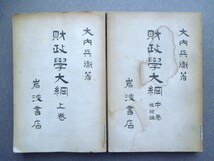 大内兵衞著
財政學大綱
上卷
岩波書店
大内兵衞著
財政學大綱
中卷
岩波書店